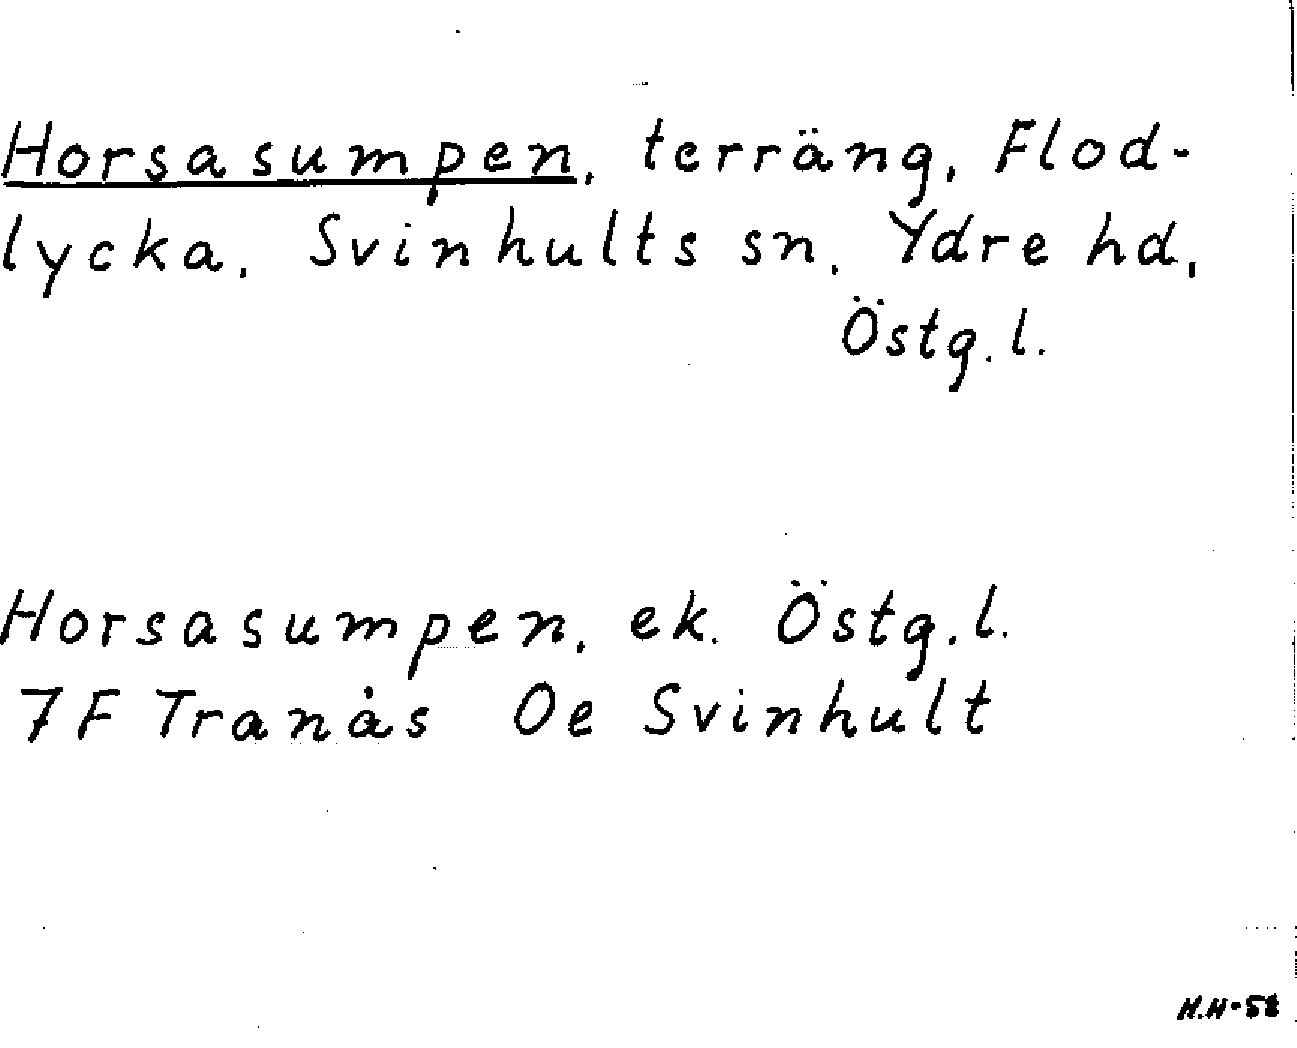 Horsasumpen, terräng, Flod-
lycka, Svinhults sn, Ydre hd,
Östg.l.
Horsasumpen, ek. Östg.l.
7F Tranås Oe Svinhult